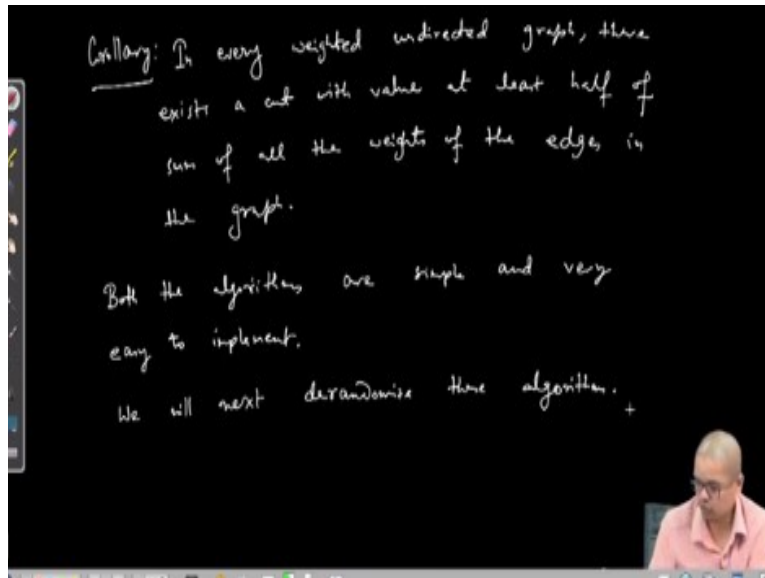 Corollary: In every weighted undirected graph, there
exists a cut with value at least half of
sum of all the weights of the edges in
the graph.
Both the algorithms are simple and very
easy to implement.
We will next derandomize these algorithm.